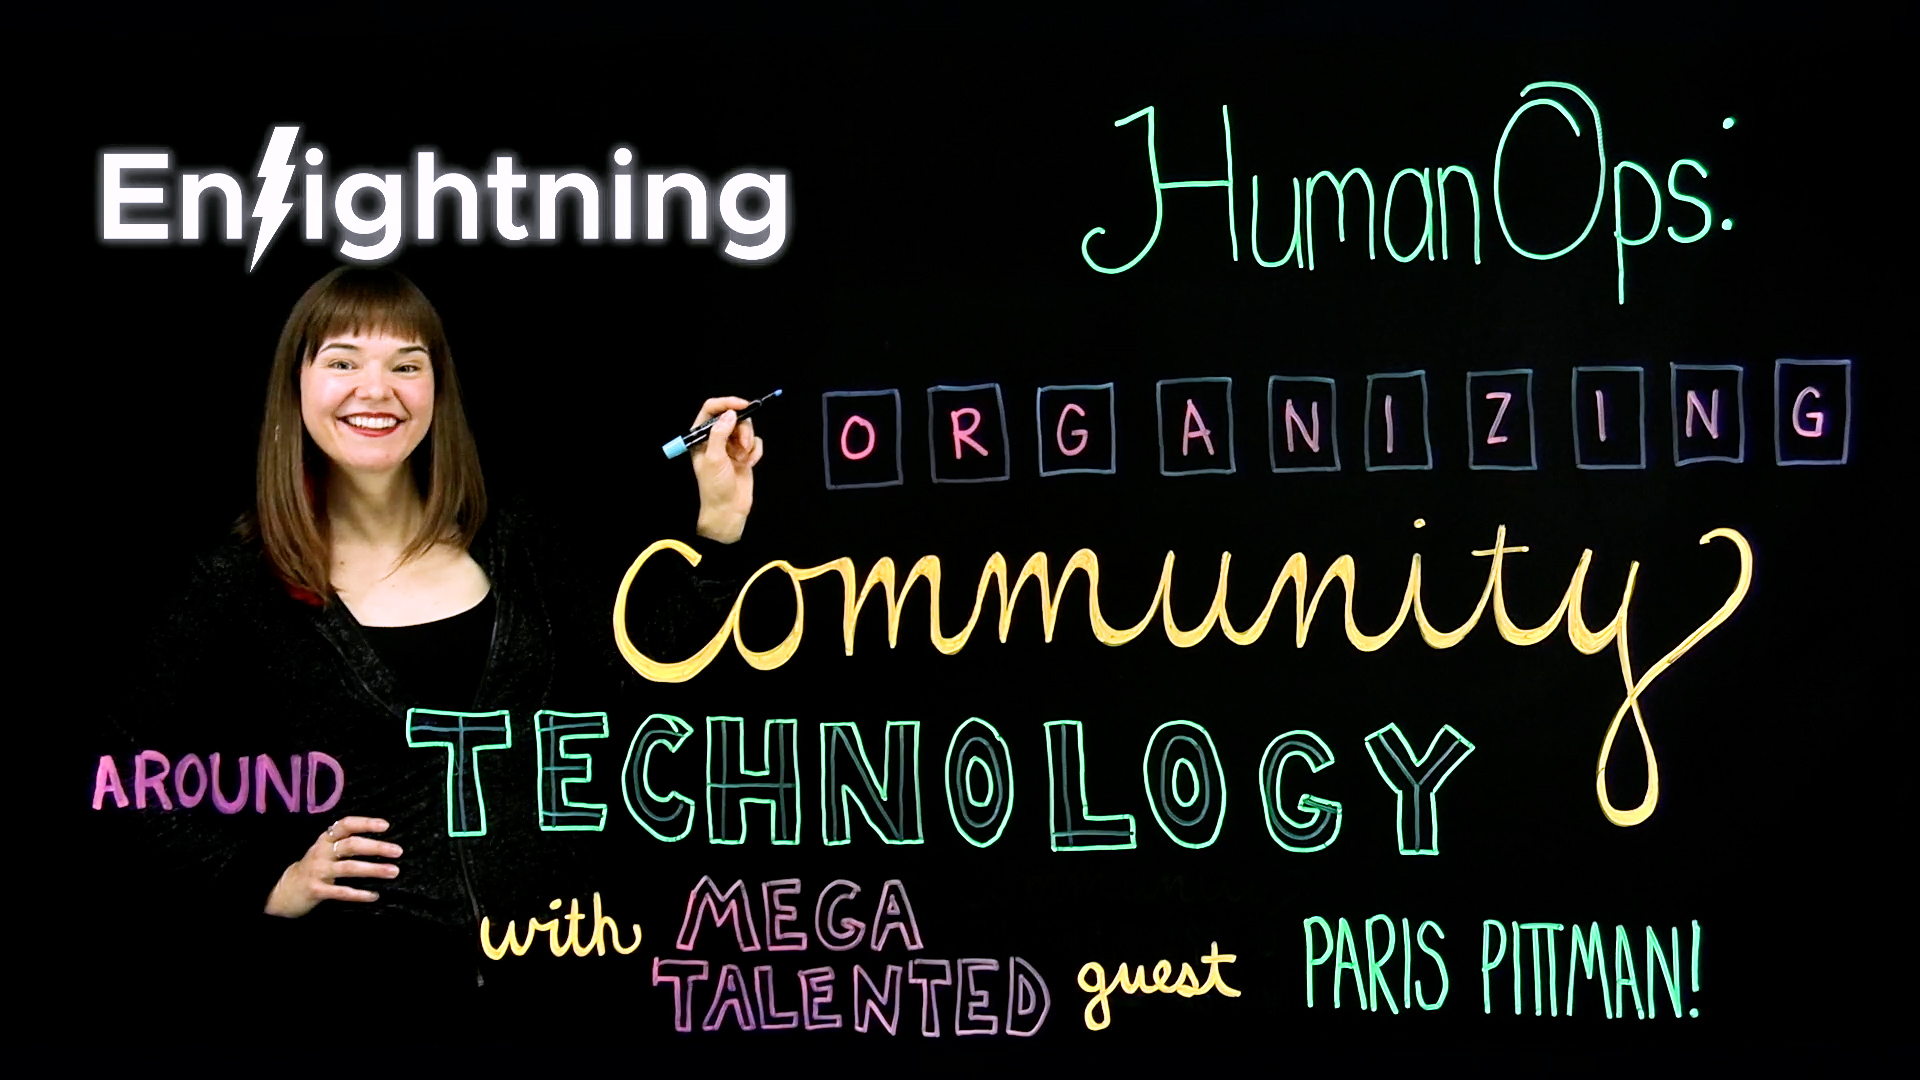 Enlightning
HumanOps:
ORGANIZING
Community
AROUND TECHNOLOGY
with MEGA TALENTED guest PARIS PITTMAN!